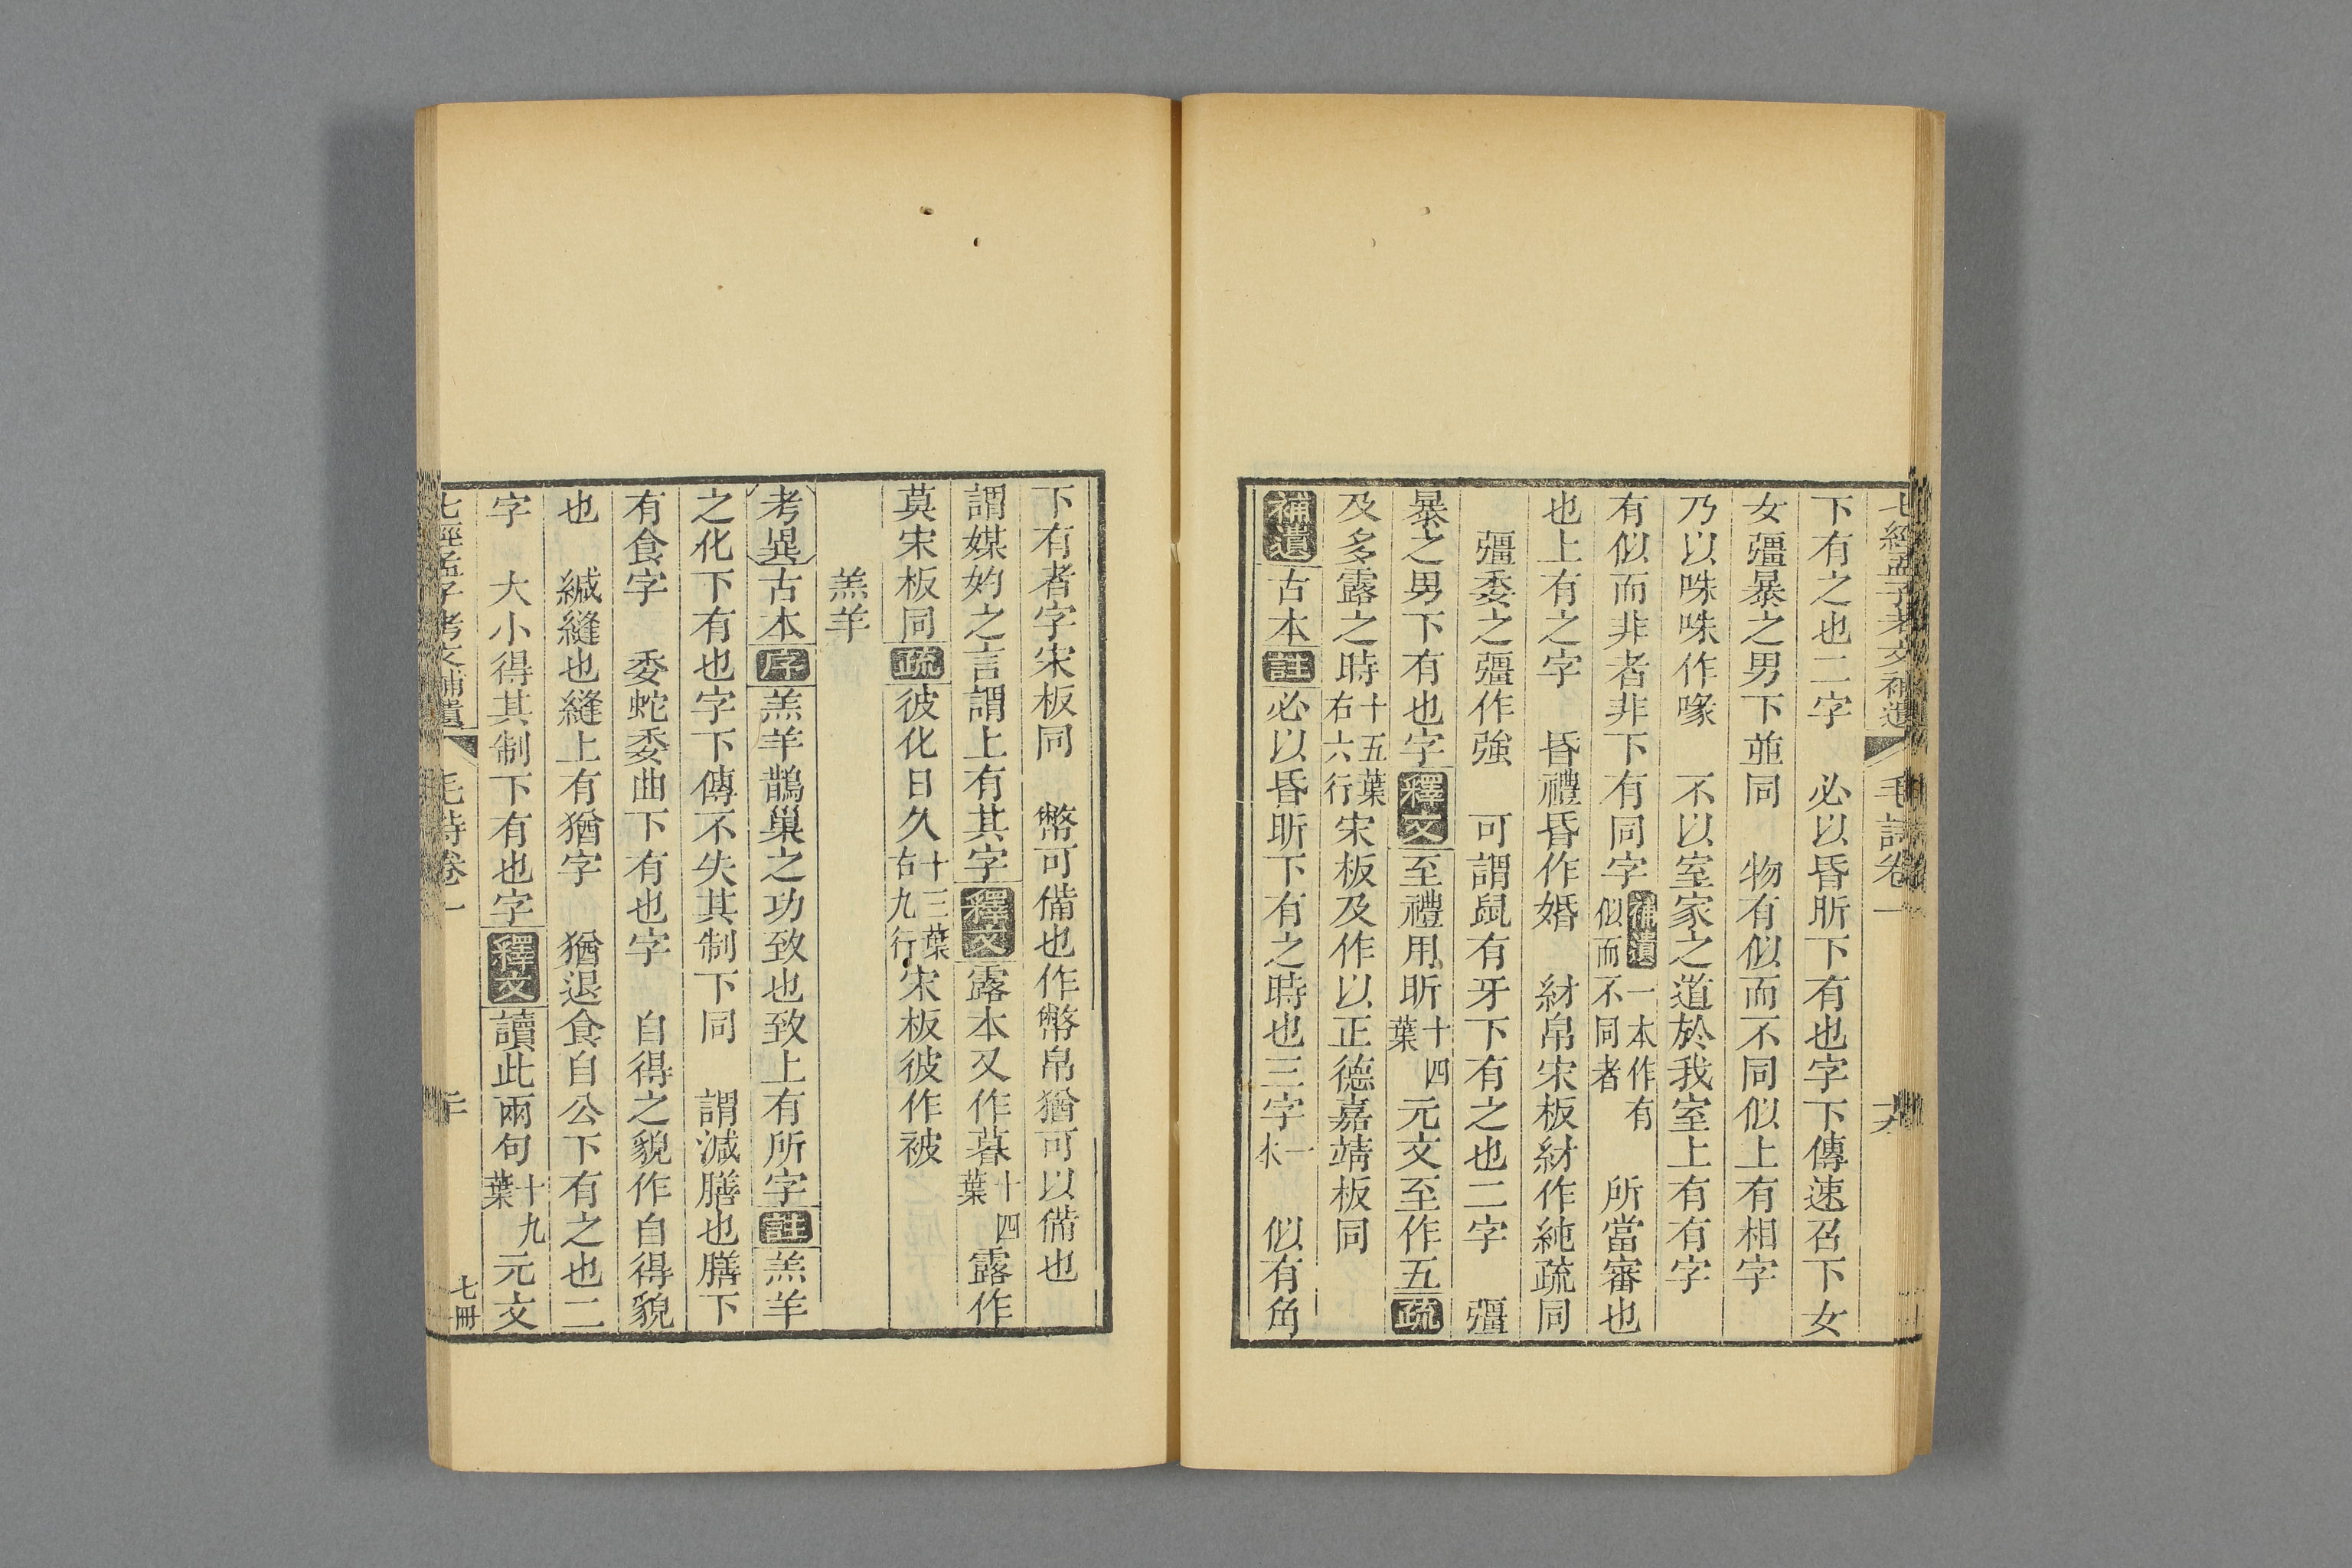 七經孟子考文補遺 毛詩卷一 十九
下有之也二字 必以昏昕下有也字下傳速召下女
女彊暴之男下並同 物有似而不同似上有相字
乃以咮咮作喙 不以室家之道於我室上有有字
有似而非者非下有同字補遺一本作有似而不同者 所當審也
也上有之字 昏禮昏作婚 紂帛宋板紂作純疏同
彊委之彊作強 可謂鼠有牙下有之也二字 彊
暴之男下有也字釋文至禮用昕十四葉元文至作五疏
及多露之時十五葉右六行宋板及作以正德嘉靖板同
補遺古本註必以昏昕下有之時也三字一本 似有角
下有者字宋板同 幣可備也作幣帛猶可以備也
謂媒妁之言謂上有其字釋文露本又作暮十四葉露作
莫宋板同疏彼化日久十三葉右九行宋板彼作被
羔羊
考異古本序羔羊鵲巢之功致也致上有所字註羔羊
之化下有也字下傳不失其制下同 謂減膳也膳下
有食字 委蛇委曲下有也字 自得之貌作自得貌
也 緎縫也縫上有猶字 猶退食自公下有之也二
字 大小得其制下有也字釋文讀此兩句十九葉元文
七經孟子考文補遺 毛詩卷一 二十 七冊